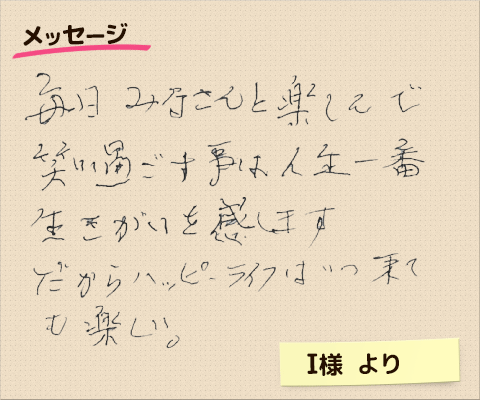 メッセージ
毎日 みなさんと楽しんで
笑い過ごす事は人生一番
生きがいを感じます
だからハッピーライフはいつ来て
も楽しい。
I様 より